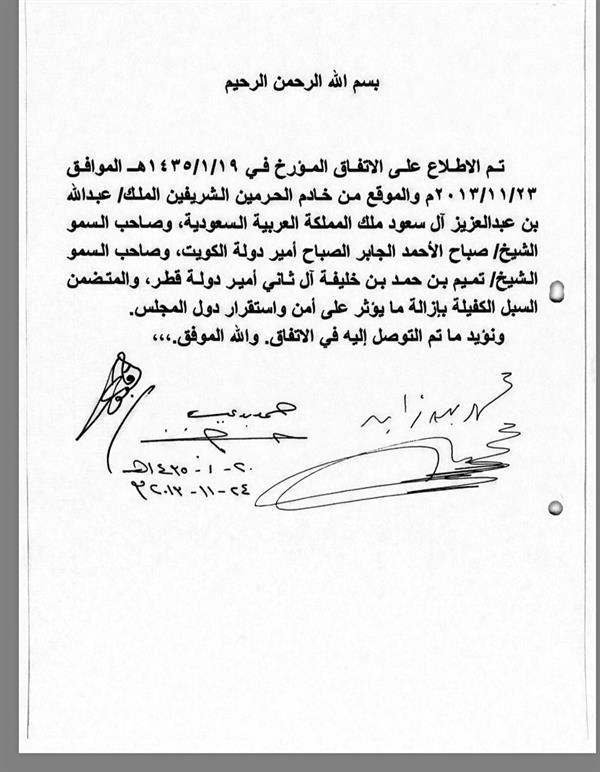 بسم الله الرحمن الرحيم
تم الاطلاع على الاتفاق المؤرخ في ١٤٣٥/١/١٩هـ الموافق
٢٠١٣/١١/٢٣م والموقع من خادم الحرمين الشريفين الملك/ عبدالله
بن عبدالعزيز آل سعود ملك المملكة العربية السعودية، وصاحب السمو
الشيخ/ صباح الأحمد الجابر الصباح أمير دولة الكويت، وصاحب السمو
الشيخ/ تميم بن حمد بن خليفة آل ثاني أمير دولة قطر، والمتضمن
السبل الكفيلة بإزالة ما يؤثر على أمن واستقرار دول المجلس.
ونؤيد ما تم التوصل إليه في الاتفاق. والله الموفق.،،،
٢٠-١-١٤٣٥هـ
٢٤-١١-٢٠١٣م